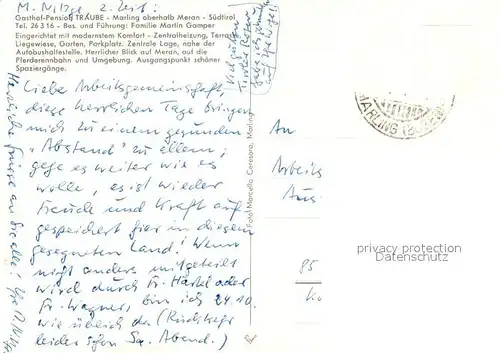 M. Nitzge z. Zeit:
Gasthof-Pension TRAUBE - Marling oberhalb Meran - Südtirol
Tel. 26 3 16 - Bes. und Führung: Familie Martin Gamper
Eingerichtet mit modernstem Komfort - Zentralheizung, Terras
Liegewiese, Garten, Parkplatz. Zentrale Lage, nahe der
Autobushaltestelle. Herrlicher Blick auf Meran, auf die
Pferderennbahn und Umgebung. Ausgangspunkt schöner
Spaziergänge.
Liebe Arbeitsgemeinschaft,
diese herrlichen Tage bringen
mich zu einem gesunden
"Abstand" zu allem;
gehe es weiter wie es
wolle, es ist wieder
Freude und Kraft auf-
gespeichert hier in diesem
gesegneten Land! Wenn
nicht anders mitgeteilt
wird durch Fr. Härtel oder
Fr. Wagner, bin ich 24.10.
wie üblich da (Rückkehr
leider schon Sa. Abend.)
Herzliche Grüsse an Sie alle! Ihre
Foto Marcello Ceresara, Marling
MARLING
An
Arbeits
Aus
85
privacy protection
Datenschutz